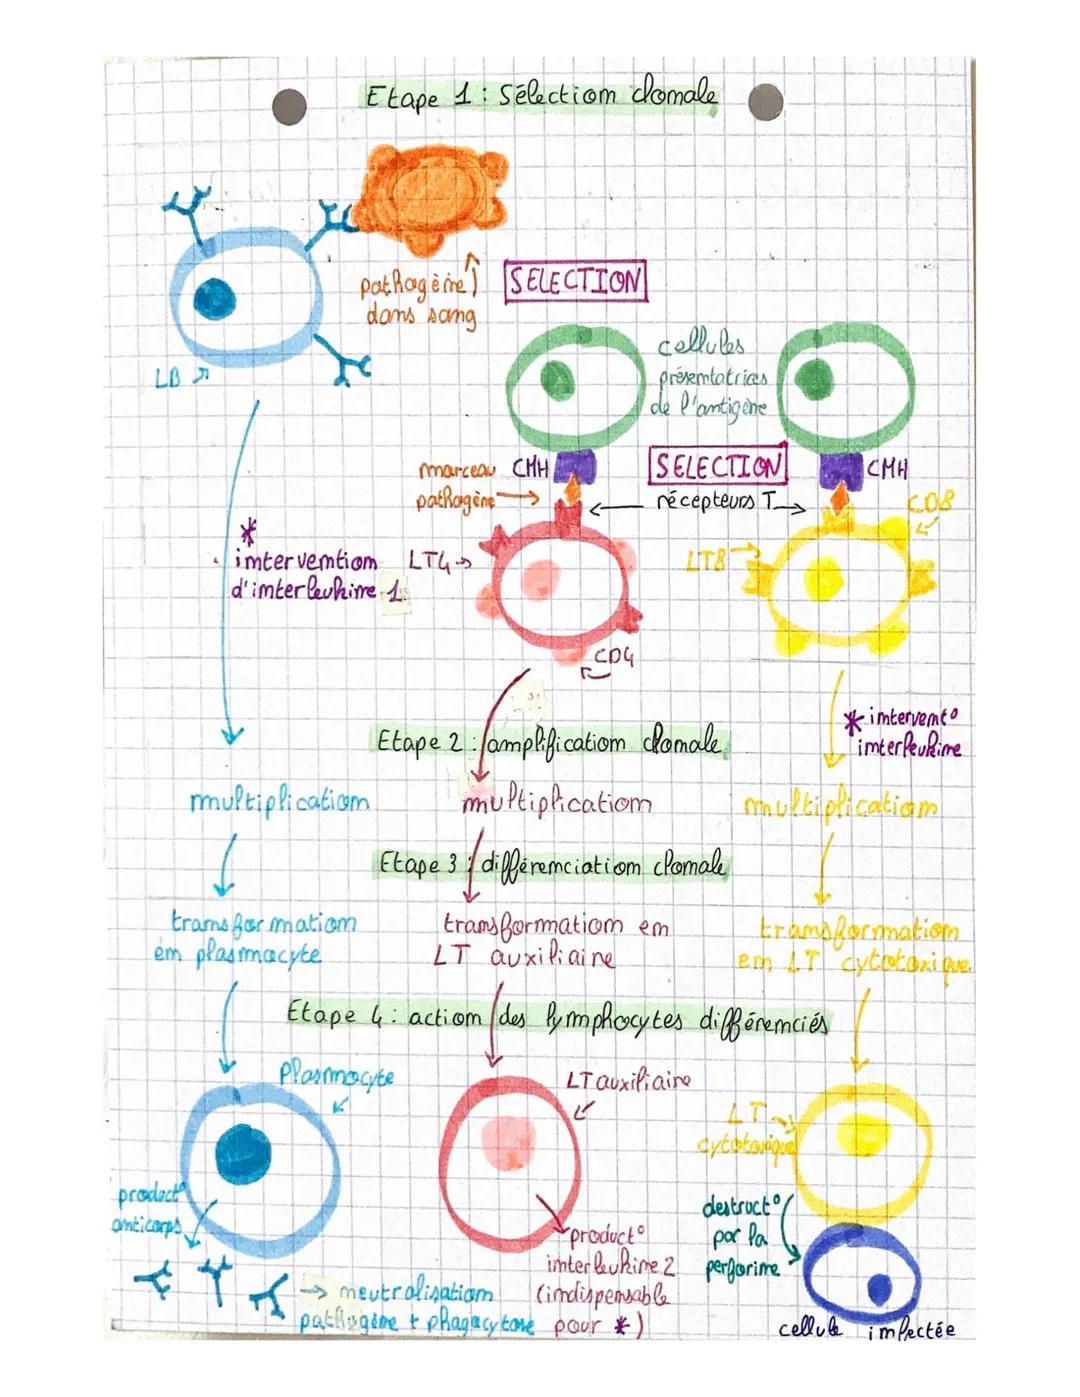 Etape 1 : Sélection clonale
pathogène
dans sang
SELECTION
LB
cellules
présentatrices
de l'antigène
morceau
pathogène
CMH
SELECTION
CMH
récepteurs T
CD8
*
intervention
d'interleukine 1
LT4
LT8
CD4
* intervent°
interleukine
Etape 2 : amplification clonale
multiplication
multiplication
multiplication
Etape 3 : différenciation clonale
transformation
en plasmocyte
transformation en
LT auxiliaire
transformation
en LT cytotoxique
Etape 4 : action des lymphocytes différenciés
Plasmocyte
LT auxiliaire
LT
cytotoxique
product°
anticorps
destruct°
par la
perforine
product°
interleukine 2
(indispensable
pour *)
→ neutralisation
pathogène + phagocytose
cellule infectée